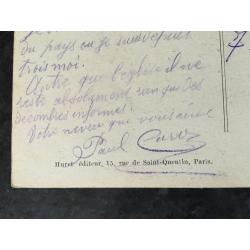 du pays où je suis depuis
trois moi.
Autre que l'église il ne
reste absolument rien que des
décombres informes.
Votre neveu qui vous aime
Paul
Huret, éditeur, 15, rue de Saint-Quentin, Paris.